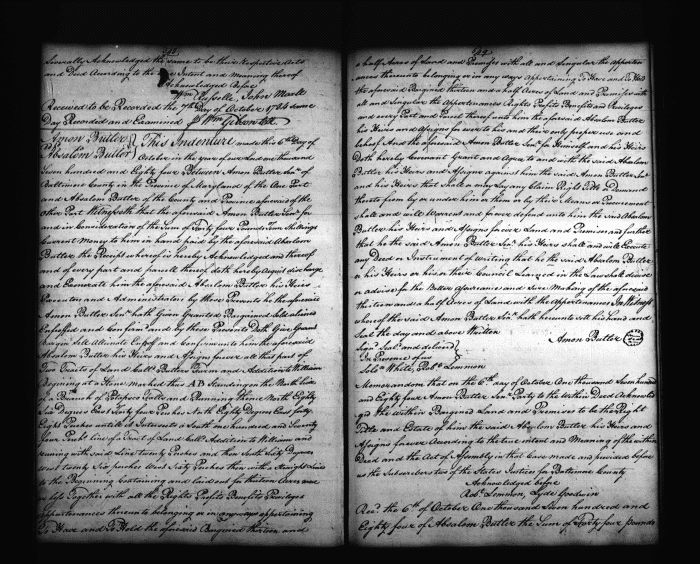 541
Severally Acknowledged the same to be their Respective Acts
and Deed According to the Intent and Meaning thereof
Acknowledged Before
Wm Russelle, James Marll
Received to be Recorded the 7th Day of October 1784 same
Day Recorded and Examined Wm Gibson Clk
Amon Butler
Absalom Butler
This Indenture made this 6th Day of
October in the year of our Lord one thousand
Seven hundred and Eighty four Between Amon Butler Senr of
Baltimore County in the Province of Maryland of the One Part
and Absalom Butler of the County and Province aforesaid of the
Other Part Witnesseth that the aforesaid Amon Butler Senr for
and in Consideration of the Sum of Forty four Pounds Ten Shillings
Current Money to him in hand paid by the aforesaid Absalom
Butler the Receipt whereof is hereby Acknowledged and thereof
and of every part and parcell thereof doth hereby Acquit discharge
and Exonerate him the aforesaid Absalom Butler his Heirs
Executors and Administrators by these Presents he the aforesaid
Amon Butler Senr hath Given Granted Bargained Sold aliened
Enfeoffed and Confirmed and by these Presents Doth Give Grant
Bargain Sell Alienate Enfeoff and Confirm unto him the aforesaid
Absalom Butler his Heirs and Assigns forever all that part of
Two Tracts of Land Called Butlers Farm and Addition to William
Begining at a Stone Marked thus A B Standing on the North side
of a Branch of Patapsco Falls and Running thence North Eighty
Six Degrees East Sixty four Perches North Eighty Degrees East forty
Eight Perches untill it Intersects a South one hundred and Seventy
four Perches Line of a Tract of Land Called Addition to William and
running with said Line Twenty Perches and then South Sixty Degrees
West twenty Six perches West Sixty Perches then with a Straight Line
to the Beginning Containing and laid out for thirteen Acres more
or less Together with all the Rights Profits Benefits Privileges
appurtenances thereunto belonging or in anyways appertaining
To Have and To Hold the aforesaid Bargined thirteen and
542
a half Acres of Land and Premises with all and Singular the Apperten-
ances thereunto belonging or in any ways Appertaining To Have and To Hold
the aforesaid Bargined thirteen and a half Acres of Land and Premises with
all and Singular the Appertenances Rights Profits Benefits and Privileges
and every Part and Parcel thereof unto him the aforesaid Absalom Butler
his Heirs and Assigns for ever to his and their only proper use and
behoof And the aforesaid Amon Butler Senr for Himself and his Heirs
Doth hereby Covenant Grant and Agree to and with the said Absalom
Butler his Heirs and Assigns against him the said Amon Butler Senr
and his Heirs that Shall or may Lay any Claim Right Title or Demand
thereto from by or under him or them or by their Means or Procurement
shall and will Warrant and forever defend unto him the said Absalom
Butler his Heirs and Assigns forever Land and Premises and further
that he the said Amon Butler Senr his Heirs shall and will Execute
any Deed or Instrument of Writing that he the said Absalom Butler
or his Heirs or his or their Council Learned in the Law shall devise
or advise for the Better Assurance and Sure Making of the aforesaid
thirteen and a half Acres of Land with the Appertenances In Witness
whereof the said Amon Butler Senr hath hereunto set his hand and
Seal the day and above Written
Amon Butler
Signd Seald and deliverd
In Presence of us
Seba White, Robt Lemmon
Memorandom that on the 6th day of October One thousand Seven hundred
and Eighty four Amon Butler Senr Party to the within Deed Acknowled-
ged the within Bargined Land and Premises to be the Right
Title and Estate of him the said Absalom Butler his Heirs and
Assigns forever According to the true intent and Meaning of the within
Deed and the Act of Assembly in that Case made and provided before
us the Subscribers two of the States Justices for Baltimore County
Acknowledged before
Robt Lemmon, Lyde Goodwin
Recd the 6th of October One thousand Seven hundred and
Eighty four of Absalom Butler the Sum of Forty four pounds